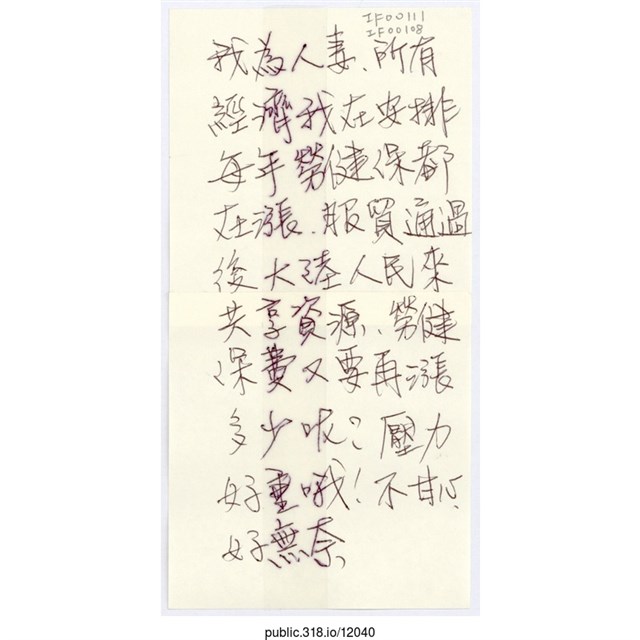 IF00111
IF00108
我為人妻、所有
經濟我在安排
每年勞健保都
在漲、服貿通過
後大陸人民來
共享資源、勞健
保費又要再漲
多少呢?壓力
好重哦!不甘心
好無奈
public.318.io/12040